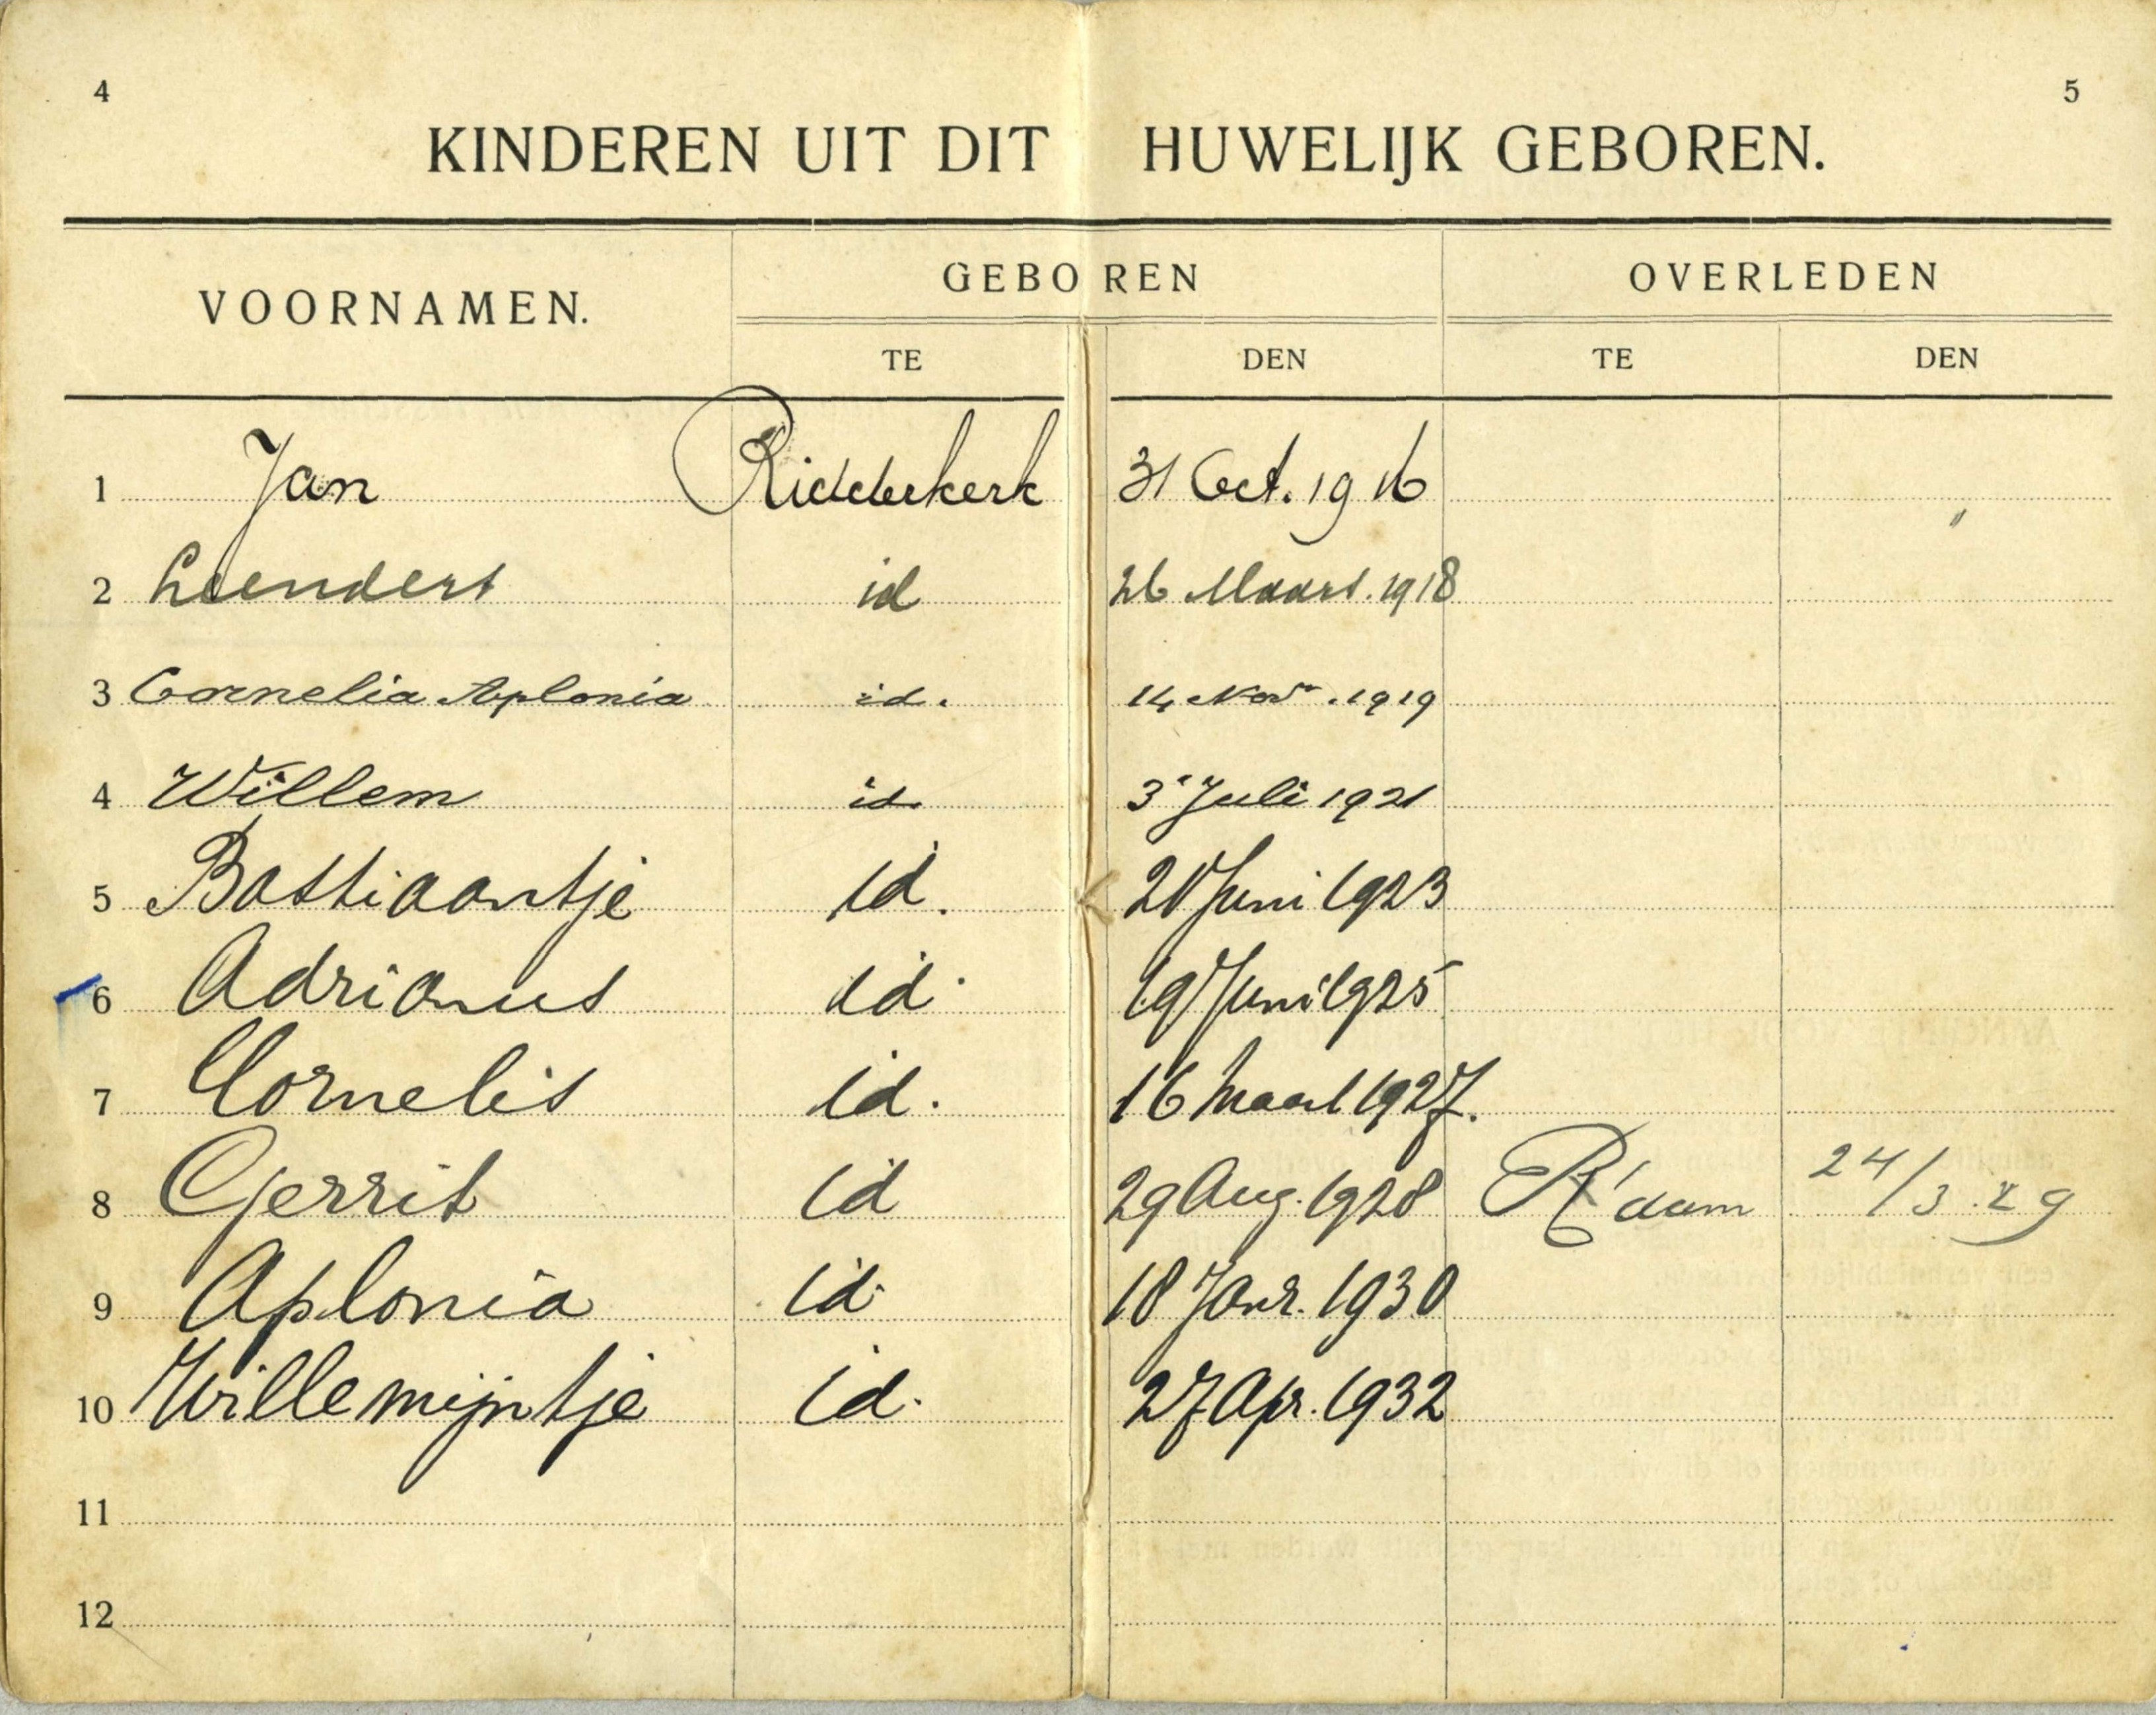 4
5
KINDEREN UIT DIT HUWELIJK GEBOREN.
VOORNAMEN.
GEBOREN
OVERLEDEN
TE
DEN
TE
DEN
1 Jan Ridderkerk 31 Oct. 1916
2 Leendert id 26 Maart. 1918
3 Cornelia Aplonia id. 14 Nov. 1919
4 Willem id. 3 Juli 1921
5 Bastiaantje id. Juni 1923
6 Adrianus id. 19 Juni 1925
7 Cornelis id. 16 Maart 1927.
8 Gerrit id 29 Aug. 1928 R'dam 24/3.29
9 Aplonia id. 18 Janr. 1930
10 Willemijntje id. 27 Apr. 1932
11
12